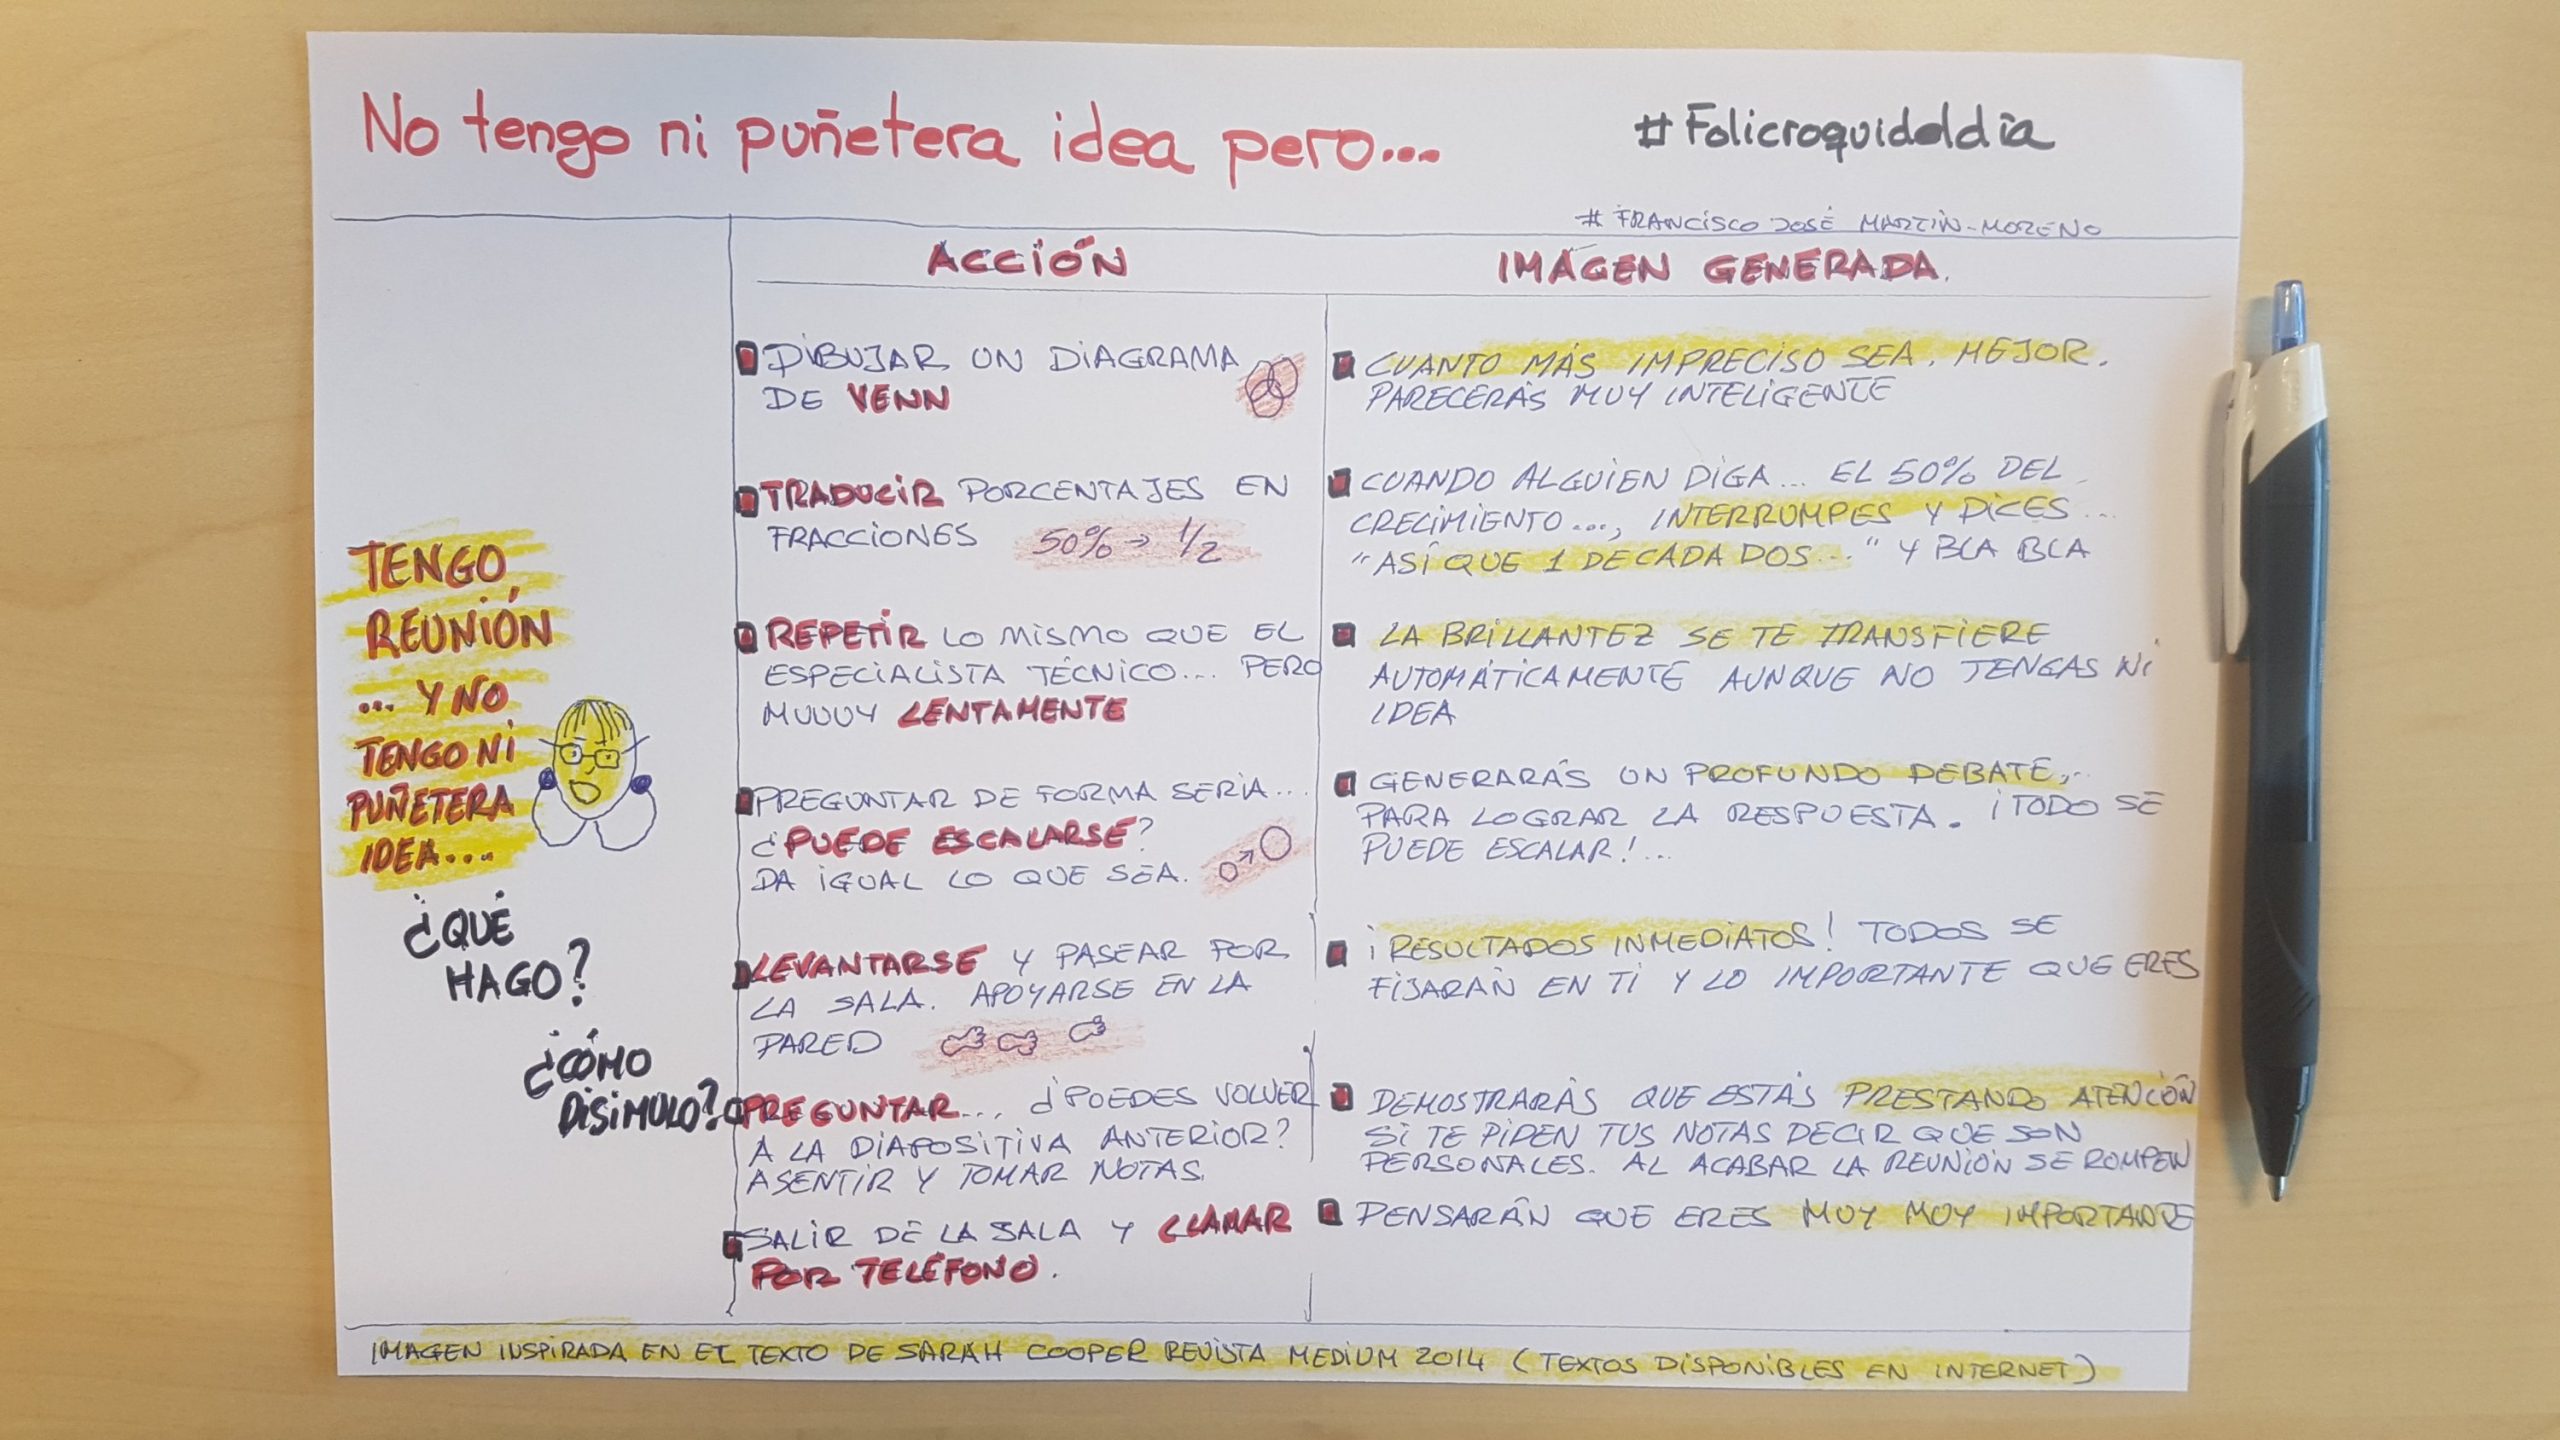 No tengo ni puñetera idea pero...
#Folicroquideldía
# FRANCISCO JOSÉ MARTÍN-MORENO
ACCIÓN
IMÁGEN GENERADA.
TENGO
REUNIÓN
... Y NO
TENGO NI
PUÑETERA
IDEA....
¿QUÉ
HAGO?
¿CÓMO
DISIMULO?
DIBUJAR UN DIAGRAMA
DE VENN
CUANTO MÁS IMPRECISO SEA. MEJOR.
PARECERÁS MUY INTELIGENTE
TRADUCIR PORCENTAJES EN
FRACCIONES 50% → 1/2
CUANDO ALGUIEN DIGA... EL 50% DEL
CRECIMIENTO..., INTERRUMPES Y DICES...
"ASÍ QUE 1 DE CADA DOS..." Y BLA BLA
REPETIR LO MISMO QUE EL
ESPECIALISTA TÉCNICO... PERO
MUUUY LENTAMENTE
LA BRILLANTEZ SE TE TRANSFIERE
AUTOMÁTICAMENTE AUNQUE NO TENGAS NI
IDEA
PREGUNTAR DE FORMA SERIA...
¿PUEDE ESCALARSE?
DA IGUAL LO QUE SEA.
GENERARÁS UN PROFUNDO DEBATE,..
PARA LOGRAR LA RESPUESTA. ¡TODO SE
PUEDE ESCALAR!...
LEVANTARSE Y PASEAR POR
LA SALA. APOYARSE EN LA
PARED
¡RESULTADOS INMEDIATOS! TODOS SE
FIJARÁN EN TI Y LO IMPORTANTE QUE ERES
PREGUNTAR... ¿PUEDES VOLVER
A LA DIAPOSITIVA ANTERIOR?
ASENTIR Y TOMAR NOTAS.
DEMOSTRARÁS QUE ESTÁS PRESTANDO ATENCIÓN
SI TE PIDEN TUS NOTAS DECIR QUE SON
PERSONALES. AL ACABAR LA REUNIÓN SE ROMPEN
SALIR DE LA SALA Y LLAMAR
POR TELÉFONO.
PENSARÁN QUE ERES MUY MUY IMPORTANTE
IMAGEN INSPIRADA EN EL TEXTO DE SARAH COOPER REVISTA MEDIUM 2014 (TEXTOS DISPONIBLES EN INTERNET)